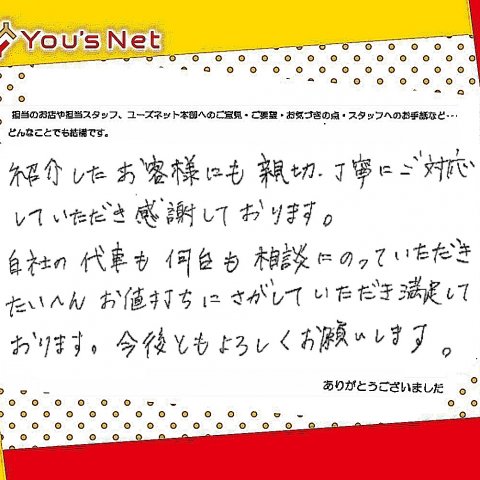 You's Net
担当のお店や担当スタッフ、ユーズネット本部へのご意見・ご要望・お気づきの点・スタッフへのお手紙など…
どんなことでも結構です。
紹介したお客様にも親切、丁寧にご対応
していただき感謝しております。
自社の代車も何台も相談にのっていただき
たいへんお値打ちにさがしていただき満足して
おります。今後ともよろしくお願いします。
ありがとうございました